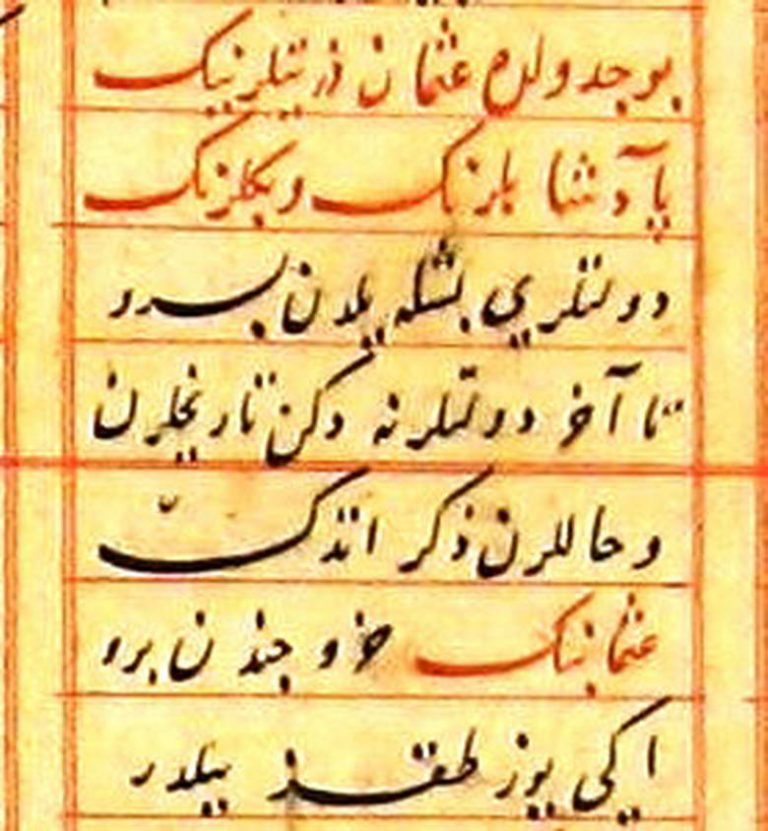 بو جدولده عثمان ذریتلرینیک
پآدشا بلرنک و بکلرنک
دولتلری بشله یلان برو
تا آخر دولتلرنه دکن تاریخلرن
و حاللرن ذکر اتدک
عثمانینک خروجندن برو
ایکی یوز طقسز ییلدر